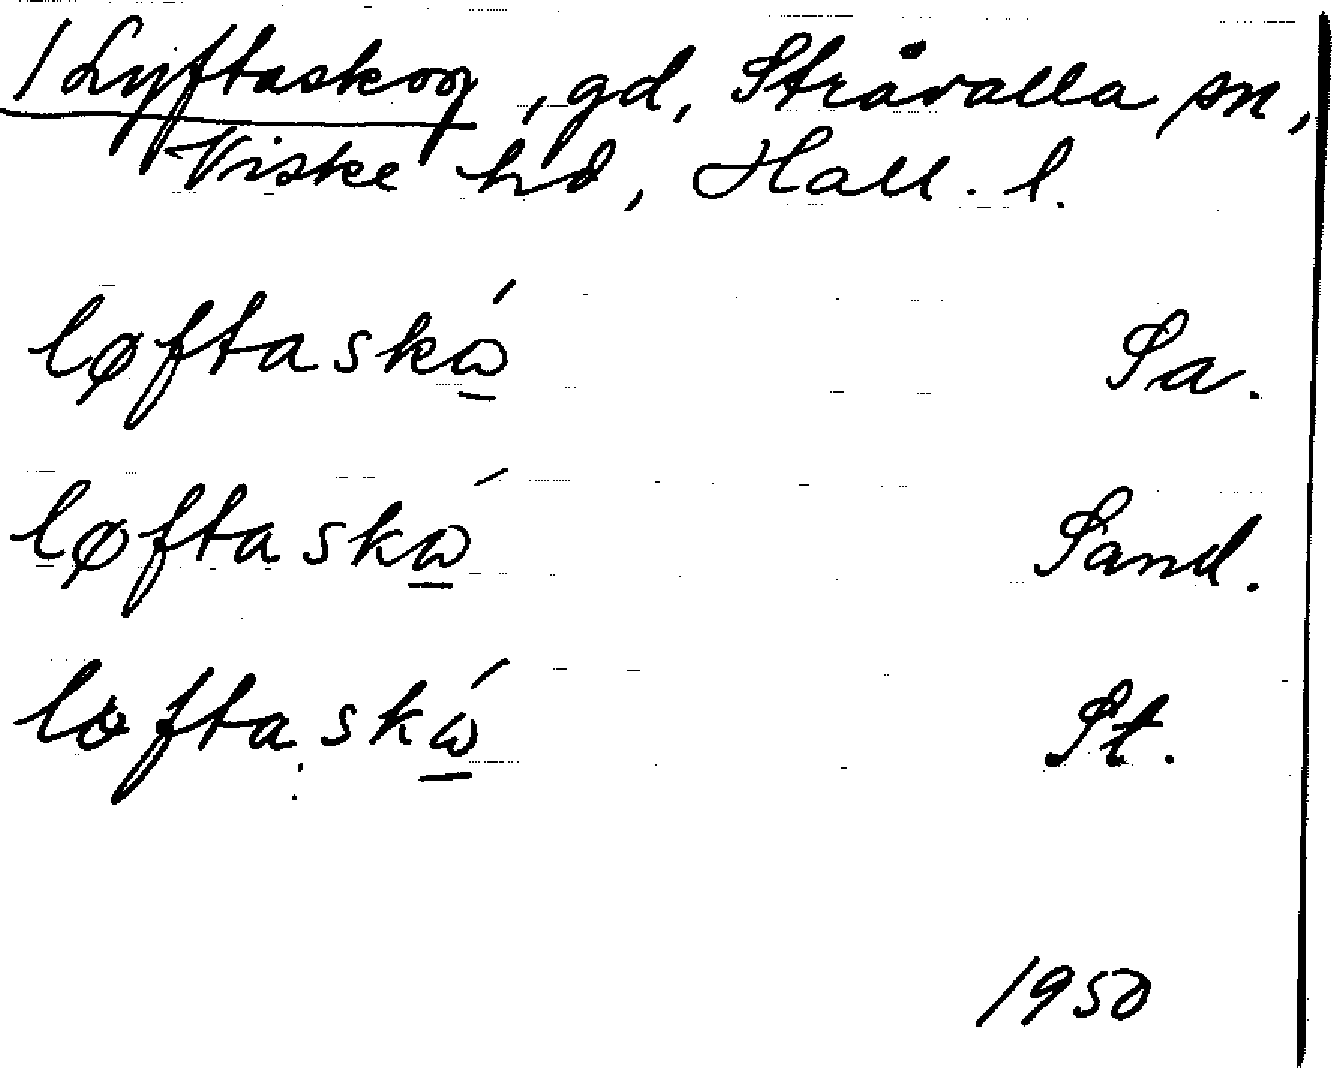 /Lyftaskog, gd, Stråvalla sn,
Viske hd, Hall. l.
løftaskώ Sa.
løftaskώ Sand.
løftaskώ St.
1950